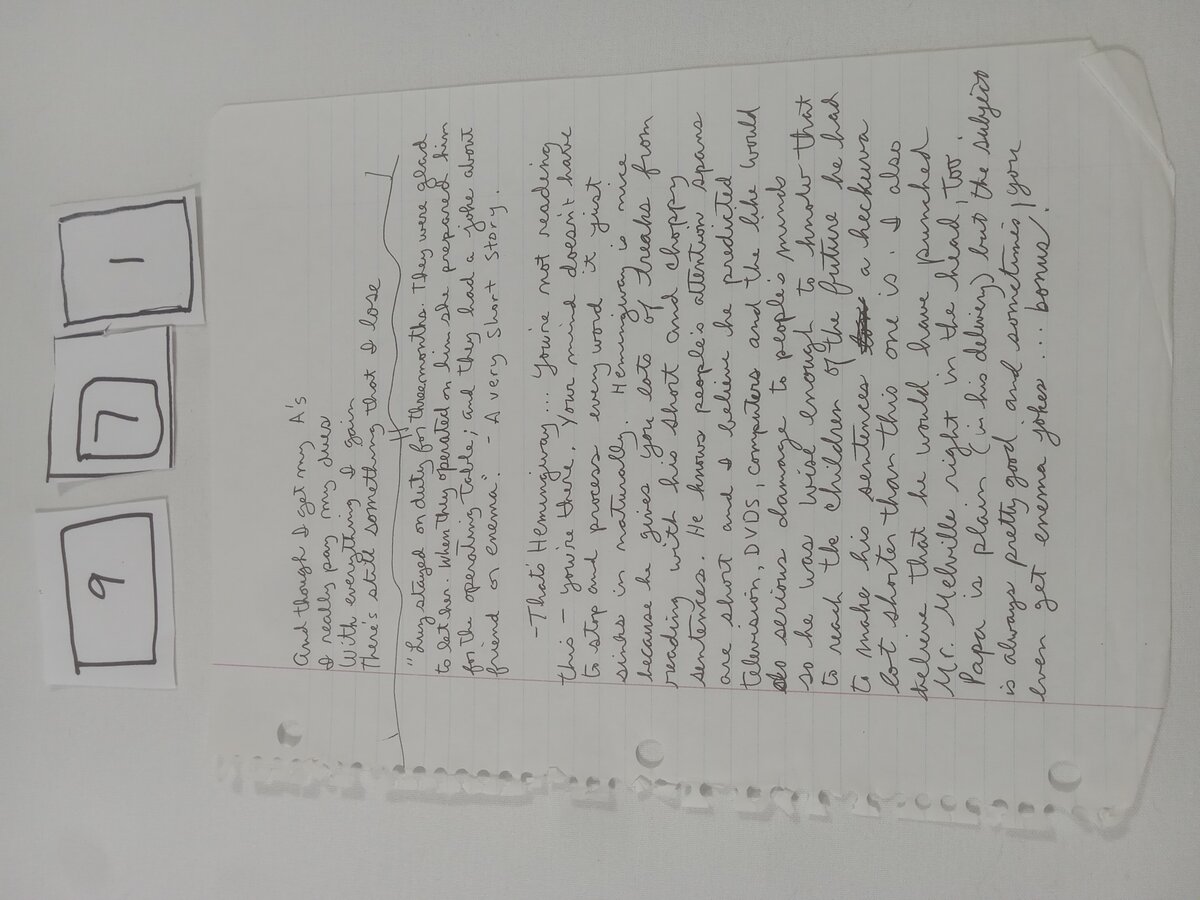 9 7 1
And though I get my A's
I really pay my dues
With everything I gain
There's still something that I lose
"Luz stayed on duty for three months. They were glad
to let her. When they operated on him she prepared him
for the operating table; and they had a joke about
friend or enema." - A very short story.
-That's Hemingway... You're not reading
this - you're there. Your mind doesn't have
to stop and process every word it just
sinks in naturally. Hemingway is nice
because he gives you lots of breaks from
reading with his short and choppy
sentences. He knows people's attention spans
are short and I believe he predicted
television, DVDs, computers and the like would
do serious damage to people's minds
so he was wise enough to know that
to reach the children of the future he had
to make his sentences a heckuva
lot shorter than this one is. I also
believe that he would have punched
Mr. Melville right in the head, too.
Papa is plain (in his delivery) but the subject
is always pretty good and sometimes, you
even get enema jokes... bonus!